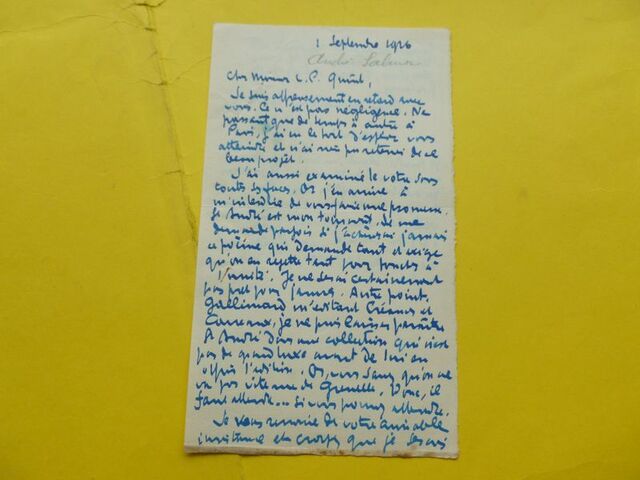 1 Septembre 1926
André Salmon
Cher Monsieur L. P. Quint,
Je suis affreusement en retard avec
vous. Ce n'est pas négligence. Ne
passant que de temps à autre à
Paris, j'ai eu le tort d'espérer vous
atteindre et n'ai rien pu retenir de ce
beau projet.
J'ai aussi examiné le vôtre sous
toutes ses faces. Or j'en arrive à
m'interdire de vous faire une promesse.
St André est mon tourment. Je me
demande parfois si j'achèverai jamais
ce poème qui demande tant et exige
qu'on en rejette tant pour
l'unité. Je ne serai certainement
pas prêt pour Janvier. Autre point,
Gallimard m'éditant Créances et
Carreaux, je ne puis laisser paraître
St André dans une collection qui n'est
pas de grand luxe avant de lui en
offrir l'édition. Or, vous savez qu'on ne
va pas vite rue de Grenelle. Donc, il
faut attendre... si vous pouvez attendre.
Je vous remercie de votre aimable
insistance et croyez que je serai